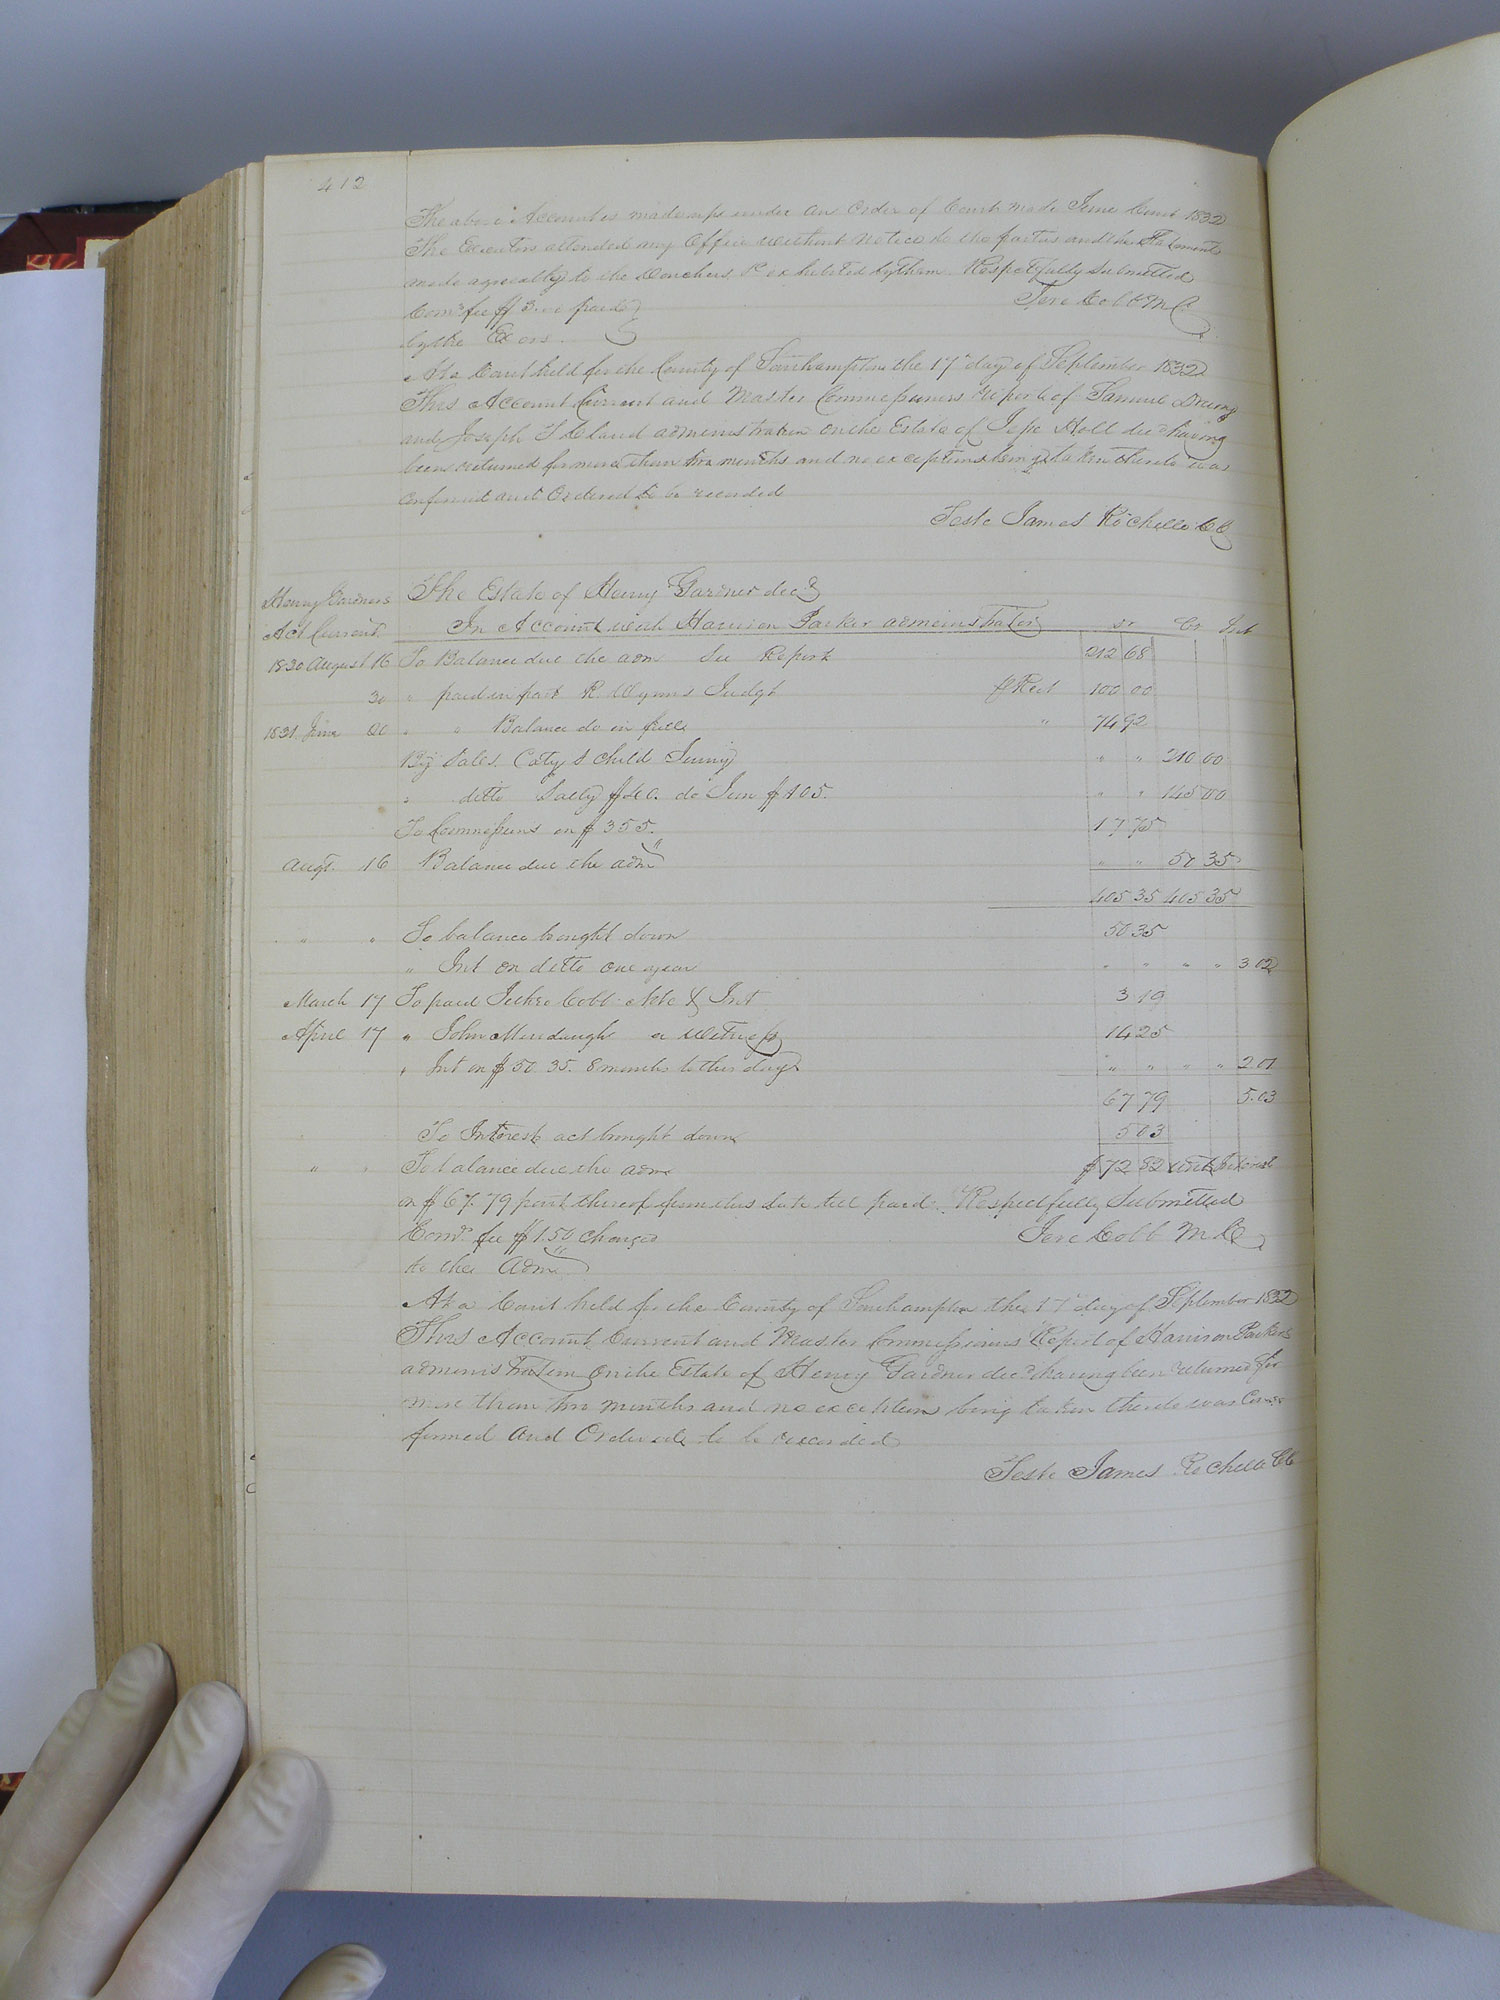 412
The above Account is made up under an order of Court made June Court 1832
The Executors attended my Office without notice to the parties and the Statement
made agreeably to the Vouchers &c exhibited by them. Respectfully Submitted
Comrs fee $3.00 paid
Jere Cobb M C
by the Exors.
At a Court held for the County of Southampton the 17th day of September 1832
This Account Current and Master Commissioners report of Samuel Drewry
and Joseph T Cland administration on the Estate of Jesse Holt decd having
been returned for more than two months and no exceptions being taken thereto was
confirmed and Ordered to be recorded
Teste James Rochelle CC
Henry Gardners
Act Current
The Estate of Henry Gardner decd
In Account with Harrison Parker administrator Dr Cr Int
1830 August 16 To Balance due the adm See Report 212 68
30 " paid in part R. Wynns Judgt p Rect 100 00
1831 June 20 " " Balance do in full " 74 92
By Sales. Caty & child Sunny " " 210 00
" ditto Sally $40. do Jim $105. " " 145 00
To Commissions on $355. 17 75
Augt. 16 Balance due the adm " " 50 35
405 35 405 35
" " To balance brought down 50 35
" Int on ditto one year " " " " 3.02
March 17 To paid Jethro Cobb Note & Int 3 19
April 17 " John Murdaugh a Witness 14 25
" Int on $50.35. 8 months to this day " " " " 2.01
67 79 5.03
To Interest act brought down 5 03
" " To balance due the adm $72 82 with Interest
on $67.79 part thereof from this date till paid. Respectfully Submitted
Comrs fee $1.50 charged
Jere Cobb M C
to the Admr
At a Court held for the County of Southampton the 17th day of September 1832
This Account Current and Master Commissioners Report of Harrison Parkers
administration on the Estate of Henry Gardner decd having been returned for
more than two months and no exception being taken thereto was Con-
firmed and Ordered to be recorded
Teste James Rochelle CC